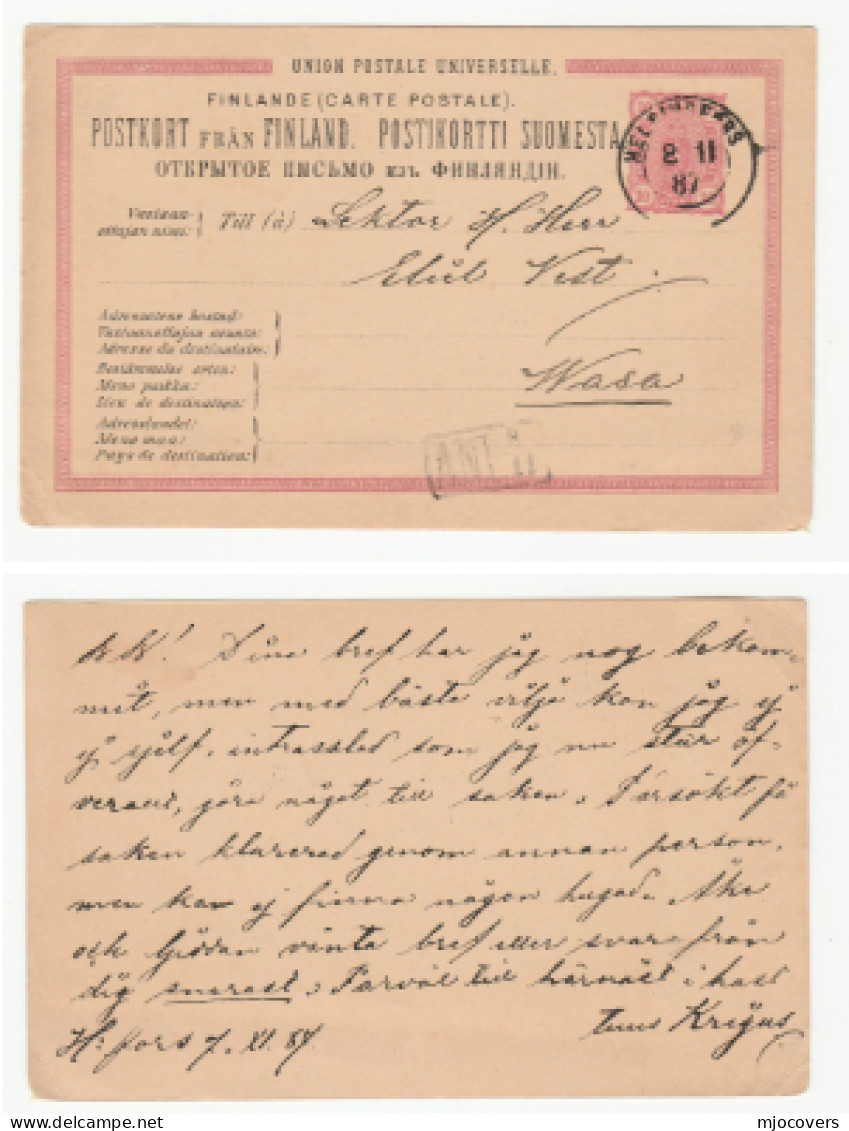 UNION POSTALE UNIVERSELLE.
FINLANDE (CARTE POSTALE).
POSTKORT FRÅN FINLAND. POSTIKORTTI SUOMESTA
ОТКРЫТОЕ ПИСЬМО изъ ФИНЛЯНДІИ.
HELSINGFORS
8 11
87
Till (à) Lektor H. Herr
Emil Vest
Wasa
Adressatens bostad:
Vastaanottajan asunto:
Adresse du destinataire:
Bestämmelse orten:
Meno paikka:
Lieu de destination:
Adresslandet:
Meno maa:
Pays de destination:
ANK
Dina bref har jag nog bekom-
mit, men med bästa vilja kan jag ej
sjelf, intrasslad som jag nu står öf-
verallt, göra något till saken. Försökt få
saken klarerad genom annan person,
men kan ej finna någon hugad. Åke
och Giddan vänta bref eller svar från
dig snarast. Farväl till härnäst i hast
H:fors 7. XI. 87. tuus
mjocovers